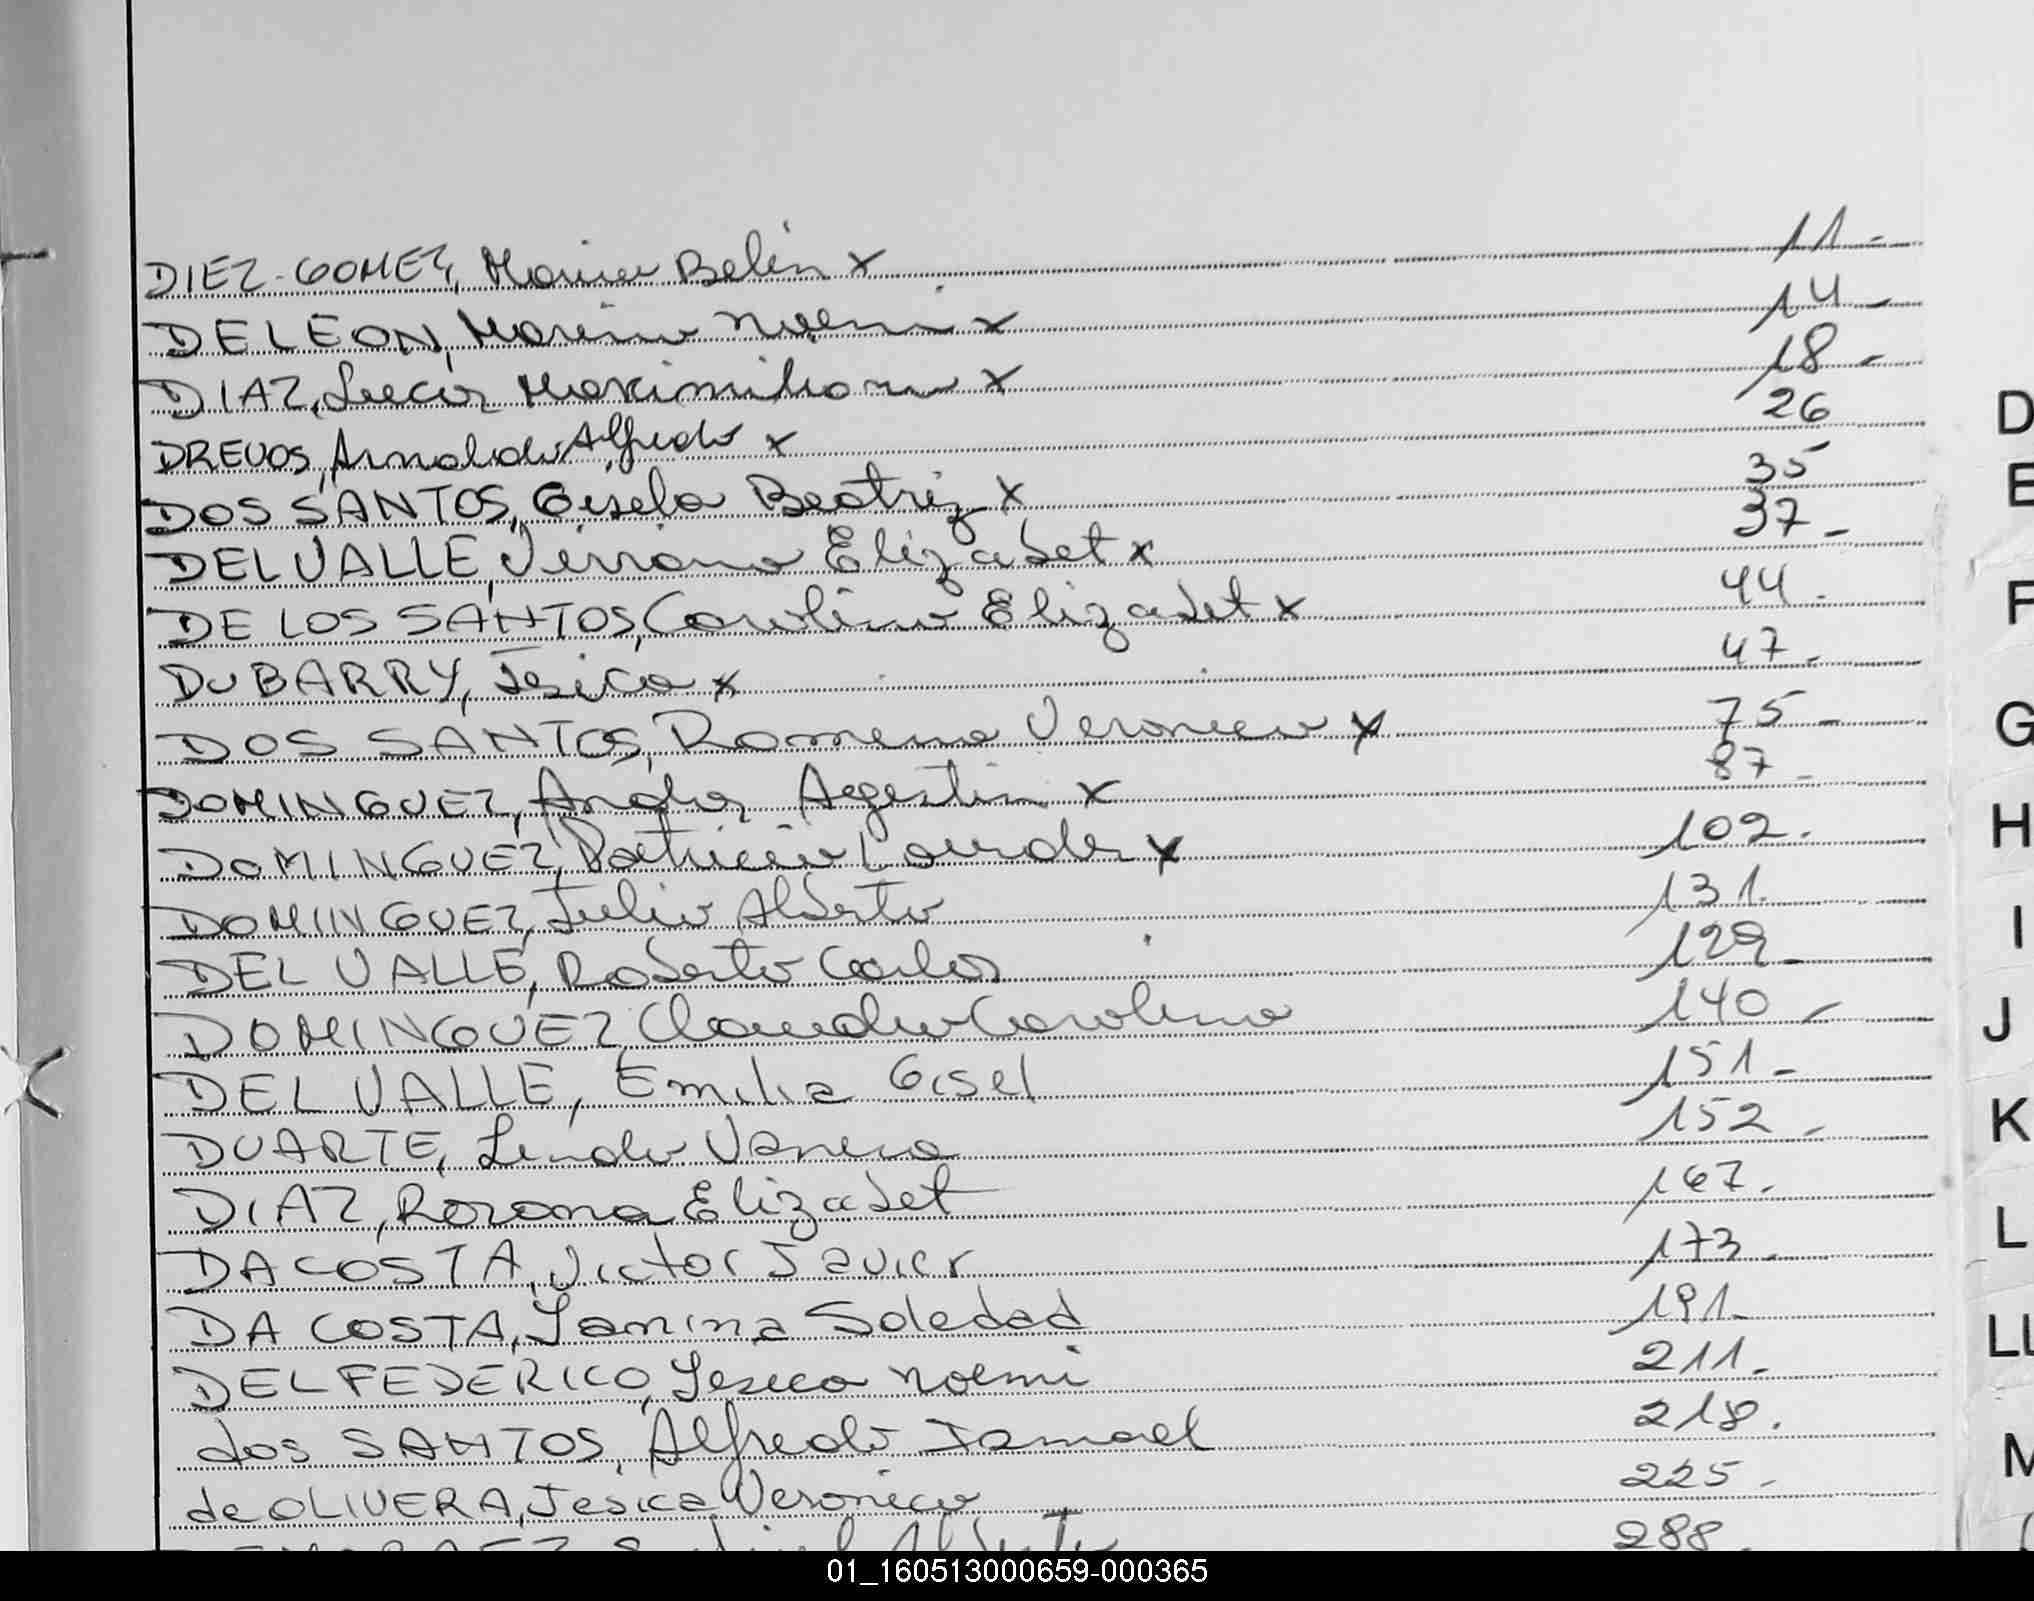 DIEZ-GOMEZ, Maria Belén x 11-
DE LEON, Marina Noemi x 14-
DIAZ, Lucas Maximiliano x 18-
DREVOS, Arnoldo Alfredo x 26
DOS SANTOS, Gisela Beatriz x 35
DEL VALLE, Viviana Elizabet x 37-
DE LOS SANTOS, Carolina Elizabet x 44-
DUBARRY, Jesica x 47-
DOS SANTOS, Romena Veronica x 75-
DOMINGUEZ, Andres Agustin x 87-
DOMINGUEZ, Patricia Lourdes x 102.
DOMINGUEZ, Julio Alberto 131.
DEL VALLE, Roberto Carlos 129-
DOMINGUEZ, Claudia Carolina 140-
DEL VALLE, Emilia Gisel 151-
DUARTE, Linda Vanesa 152-
DIAZ, Rosana Elizabet 167.
DA COSTA, Victor Javier 173-
DA COSTA, Yanina Soledad 191-
DEL FEDERICO, Yesica Noemi 211-
dos SANTOS, Alfredo Ismael 218.
de OLIVERA, Jesica Veronica 225-
Alberto 288.
D
E
F
G
H
I
J
K
L
LL
M
01_160513000659-000365